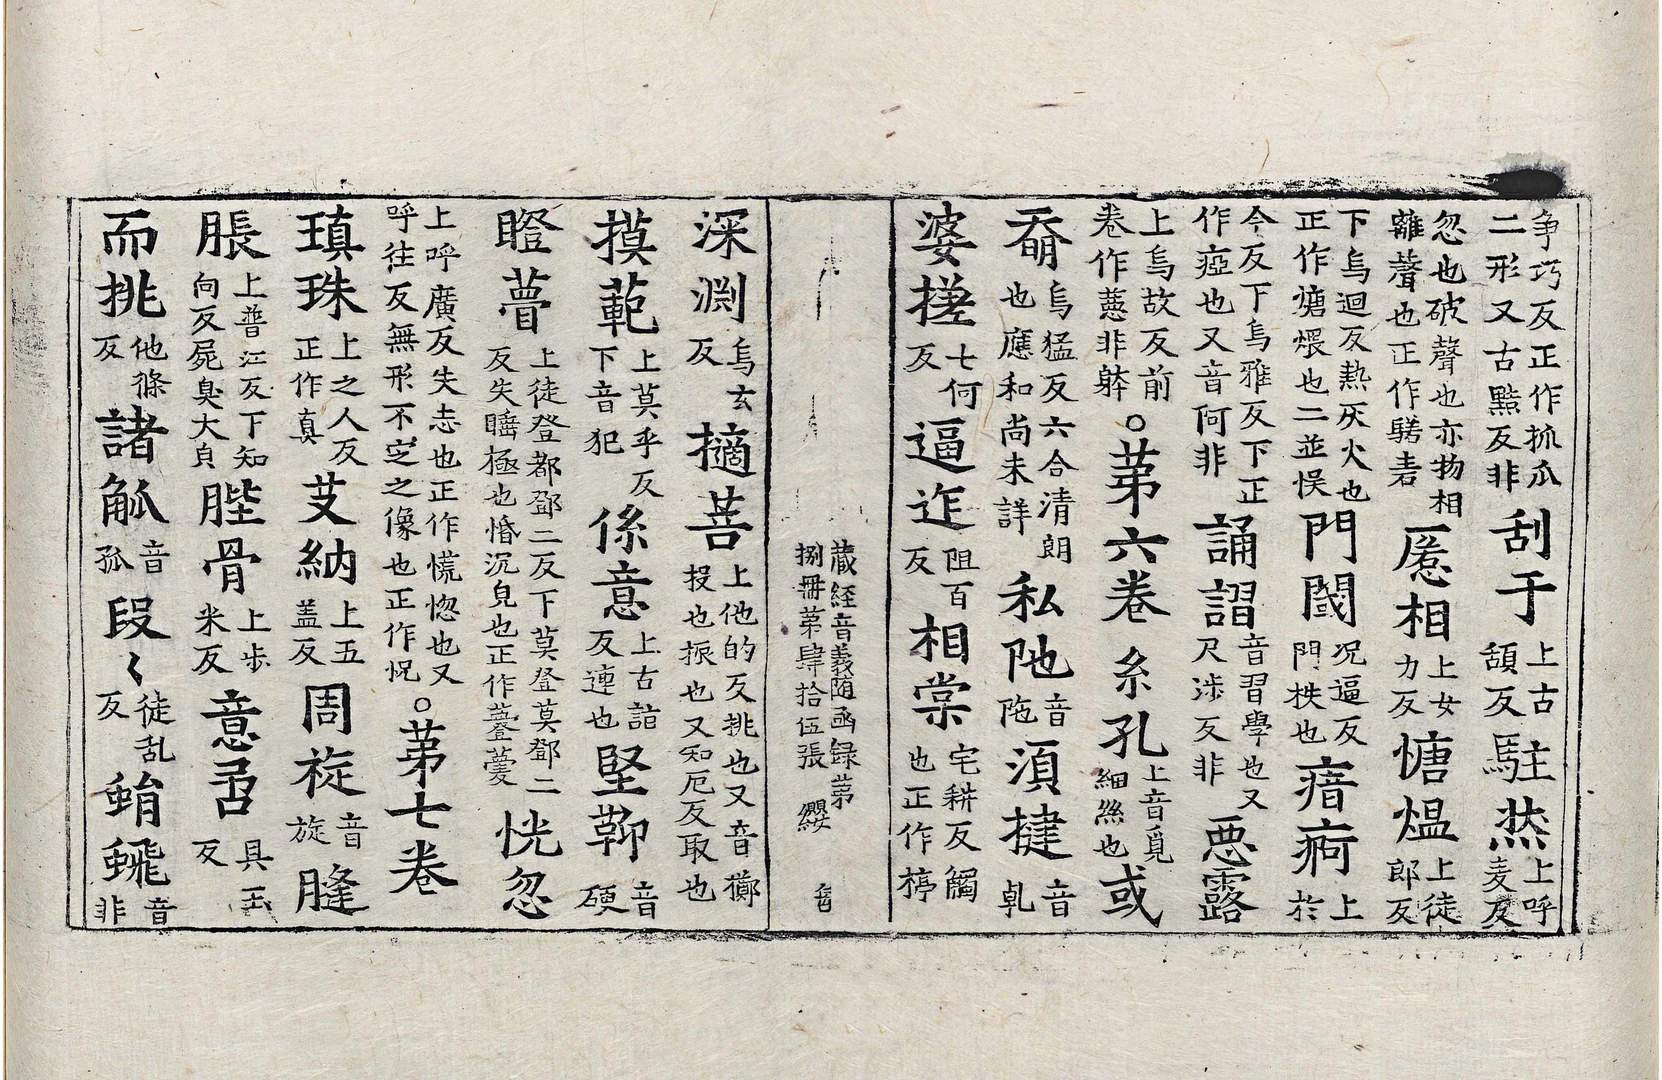 争巧反正作抓瓜二形又古㸃反非刮于上古頷反駐𤈷上呼麦反
忽也破聲也亦物相離聲也正作騞𦘒㞃相上女力反煻煴上徒郎反
下烏迴反热灰火也正作煻煨也二並悮門閾况逼反門柣也瘖痾上於
今反下烏雅反下正作瘂也又音何非誦謵音習學也又尺涉反非惡露
上烏故反前卷作蕙非躰。苐六卷糸孔上音覓細絲也或
奣烏猛反六合清朗也應和尚未詳私陁音陁湏揵音乹
婆搓七何反逼迮阻百反相棠宅耕反觸也正作㯑
蔵経音義随函録苐捌冊苐肆拾伍張 纓
深渕烏玄反擿菩上他的反挑也又音擲投也振也又知厄反取也
摸範上莫乎反下音犯係意上古詣反連也堅鞕音硬
瞪瞢上徒登都鄧二反下莫登莫鄧二反失睡極也惛沉皃也正作䠬懜恍忽
上呼廣反失志也正作慌惚也又呼往反無形不㝎之像也正作怳。苐七卷
瑱珠上之人反正作真芆納上五盖反周旋音旋膖
脹上普江反下知向反屍臭大皃髀骨上歩米反意
而挑他條反諸觚音孤段〻徒乱反蜎蜚音非